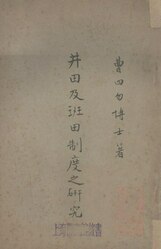 曹四勿博士著
井田及班田制度之研究